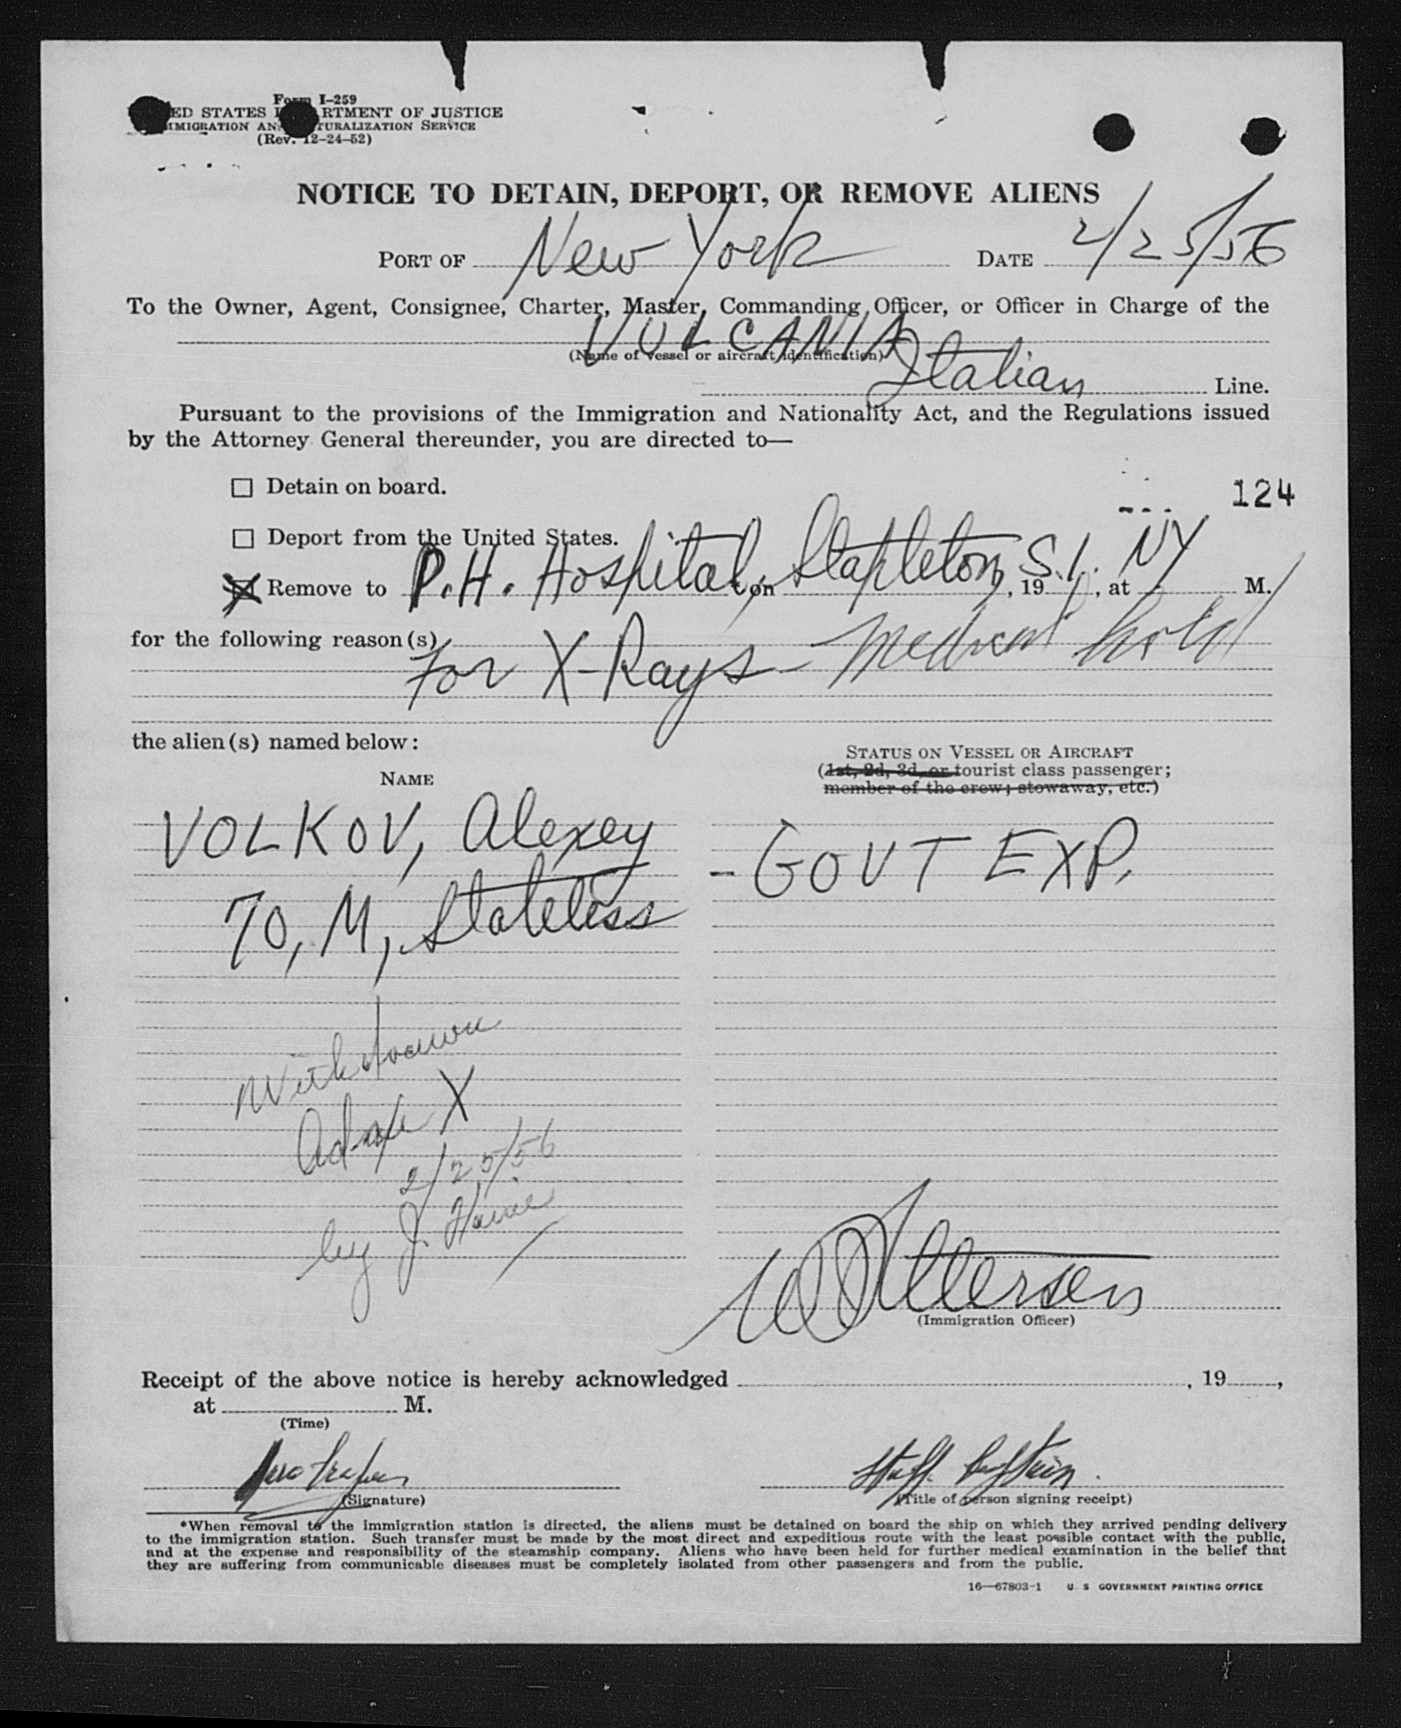 Form I-259
UNITED STATES DEPARTMENT OF JUSTICE
IMMIGRATION AND NATURALIZATION SERVICE
(Rev. 12-24-52)
NOTICE TO DETAIN, DEPORT, OR REMOVE ALIENS
PORT OF New York DATE 2/25/56
To the Owner, Agent, Consignee, Charter, Master, Commanding Officer, or Officer in Charge of the
VULCANIA
(Name of vessel or aircraft identification)
Italian Line.
Pursuant to the provisions of the Immigration and Nationality Act, and the Regulations issued
by the Attorney General thereunder, you are directed to—
☐ Detain on board.
124
☐ Deport from the United States.
☒ Remove to P.H. Hospital, on Stapleton, S.I. NY, 19, at M.
for the following reason(s)
For X-Rays - Medical hold
the alien(s) named below:
NAME
STATUS ON VESSEL OR AIRCRAFT
(1st, 2d, 3d, or tourist class passenger;
member of the crew; stowaway, etc.)
VOLKOV, Alexey
- GOVT EXP.
70, M, Stateless
Withdrawn
X
2/25/56
by J.
(Immigration Officer)
Receipt of the above notice is hereby acknowledged , 19 ,
at M.
(Time)
Staff
(Signature)
(Title of person signing receipt)
*When removal to the immigration station is directed, the aliens must be detained on board the ship on which they arrived pending delivery
to the immigration station. Such transfer must be made by the most direct and expeditious route with the least possible contact with the public,
and at the expense and responsibility of the steamship company. Aliens who have been held for further medical examination in the belief that
they are suffering from communicable diseases must be completely isolated from other passengers and from the public.
16—67803-1 U. S. GOVERNMENT PRINTING OFFICE